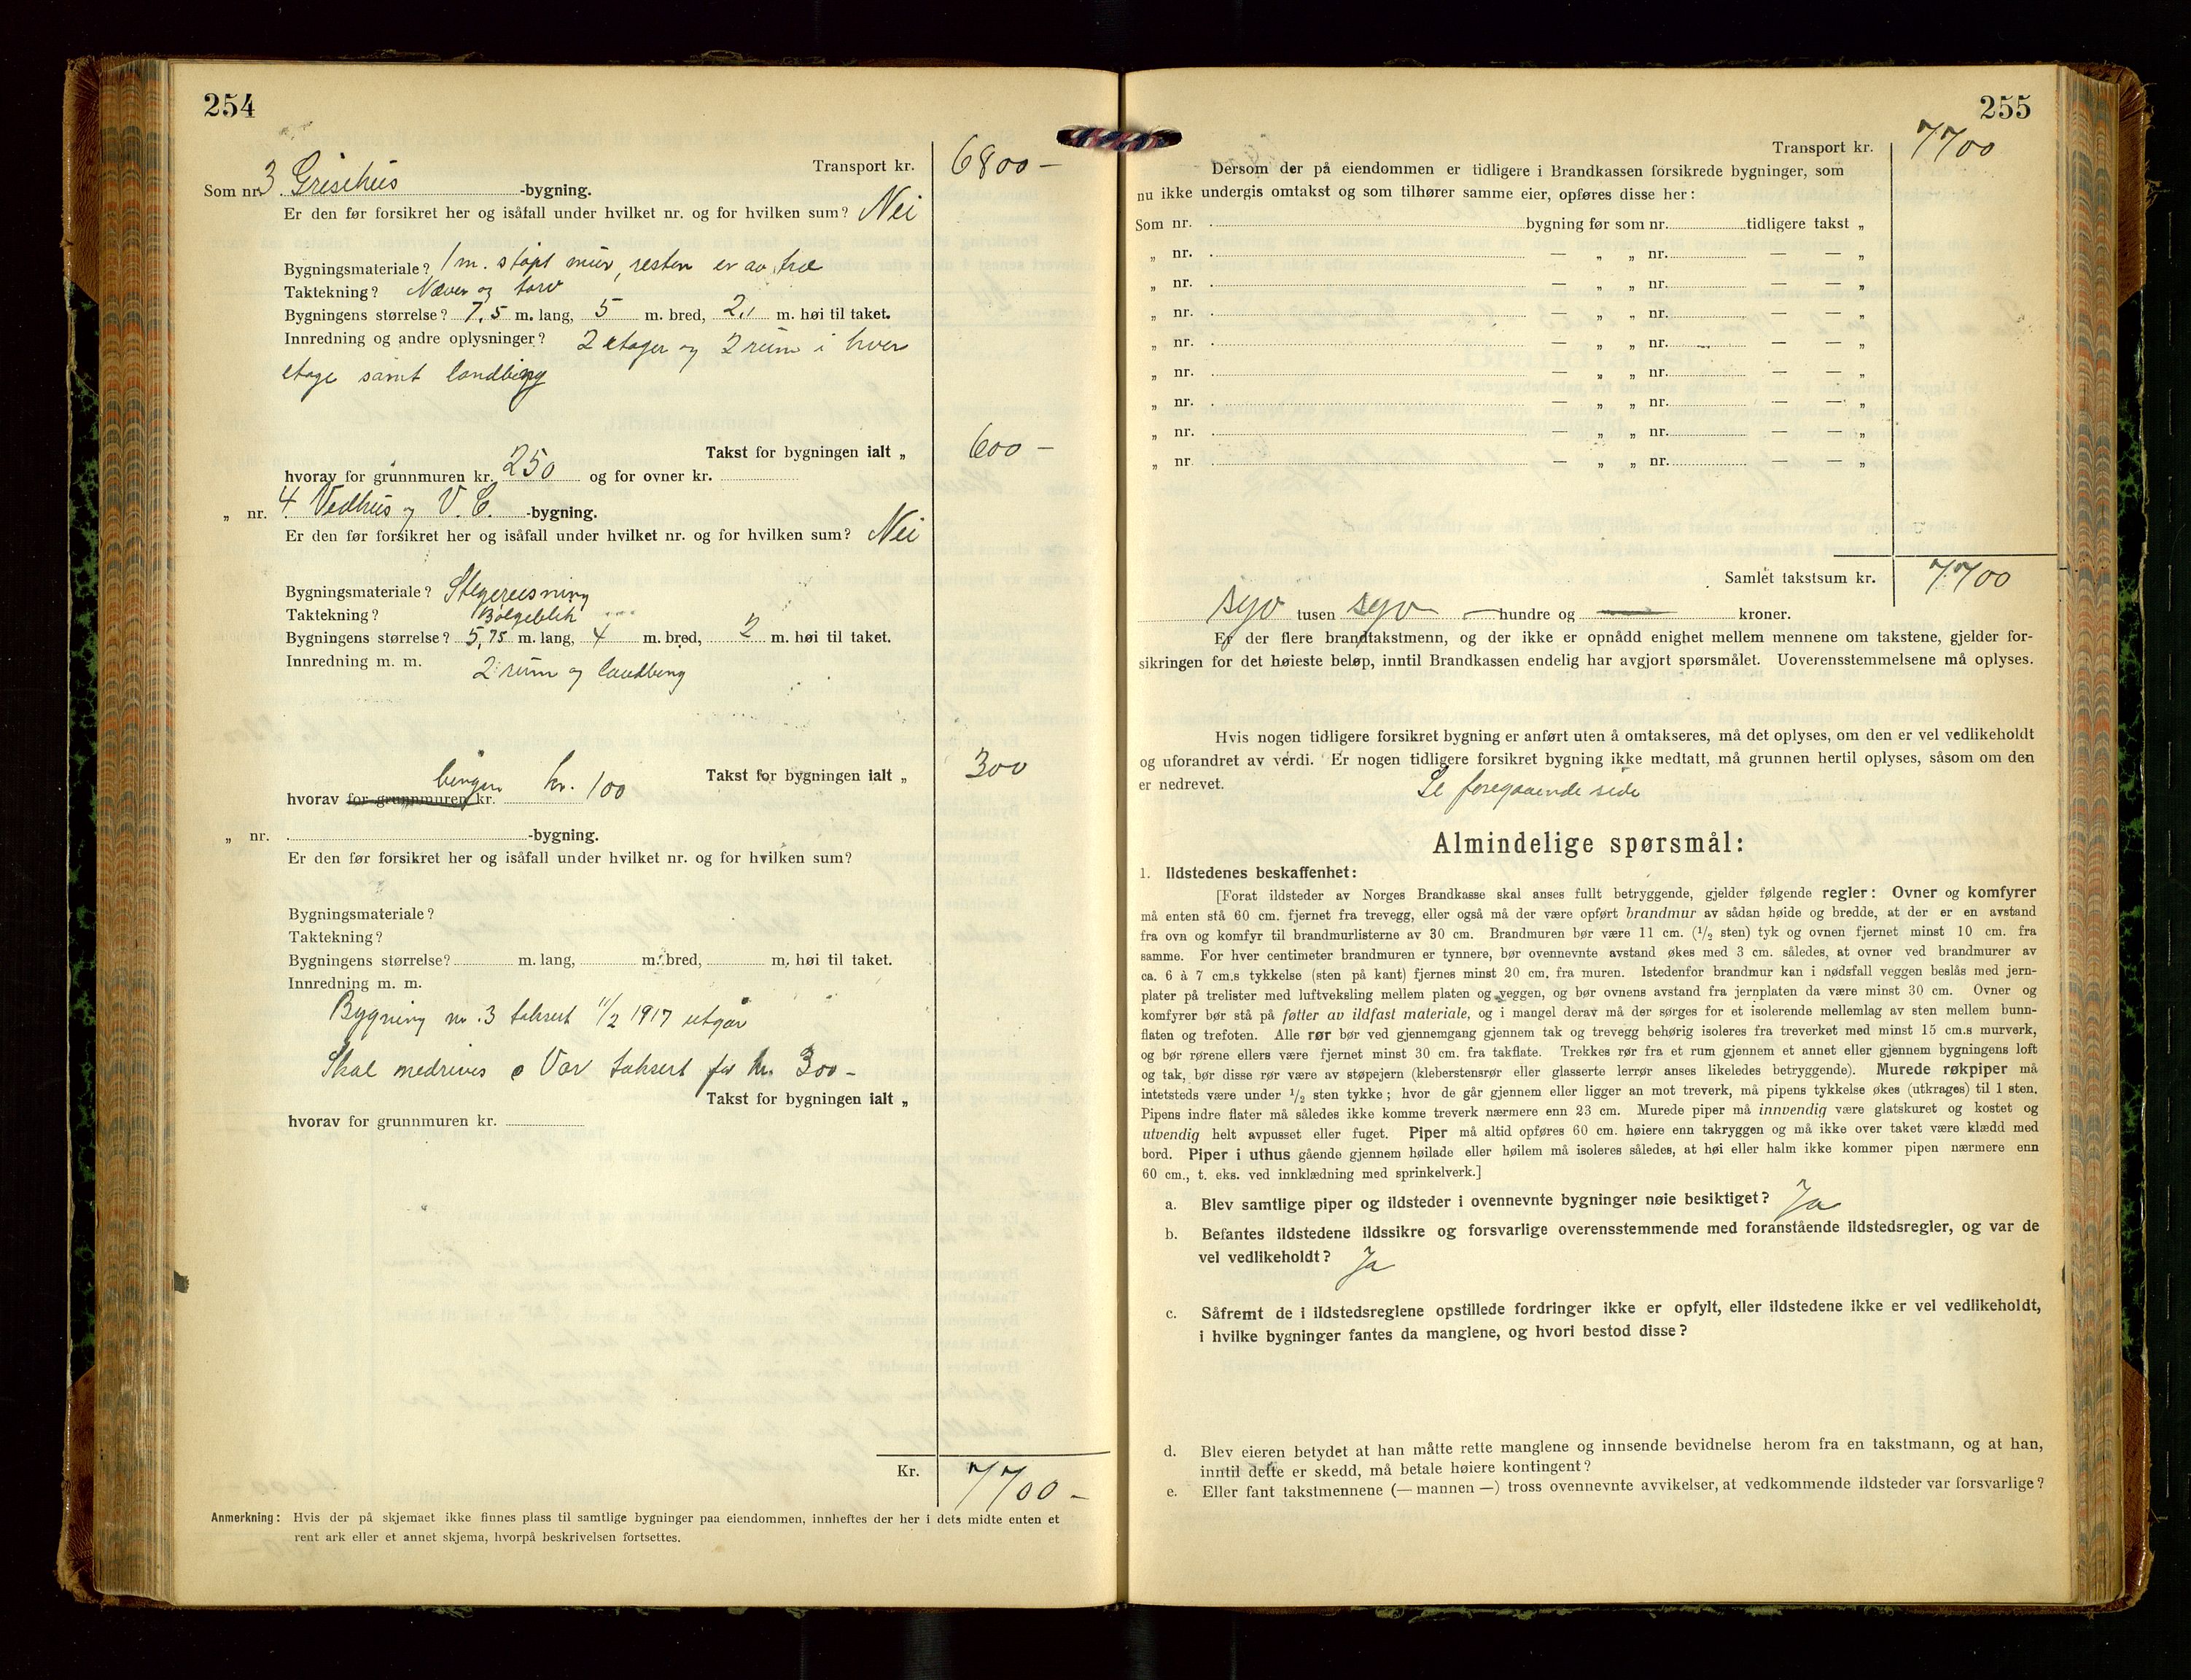 254
Transport kr. 6800 –
Som nr. 3 Grisehus -bygning.
Er den før forsikret her og isåfall under hvilket nr. og for hvilken sum? Nei
Bygningsmateriale? 1 m. støpt mur, resten er av tre
Taktekning? Næver og torv
Bygningens størrelse? 7,5 m. lang, 5 m. bred, 2,1 m. høi til taket.
Innredning og andre oplysninger? 2 etager og 2 rum i hver
etage samt landbeng
Takst for bygningen ialt „ 600 –
hvorav for grunnmuren kr. 250 og for ovner kr.
„ nr. 4 Vedhus og V. C. -bygning.
Er den før forsikret her og isåfall under hvilket nr. og for hvilken sum? Nei
Bygningsmateriale? Stegereisning
Taktekning? Bølgeblik
Bygningens størrelse? 5,75 m. lang, 4 m. bred, 2 m. høi til taket.
Innredning m. m. 2 rum og landbeng
Takst for bygningen ialt „ 300
hvorav for grunnmuren kr. kr. 100
„ nr. -bygning.
Er den før forsikret her og isåfall under hvilket nr. og for hvilken sum?
Bygningsmateriale?
Taktekning?
Bygningens størrelse? m. lang, m. bred, m. høi til taket.
Innredning m. m.
Bygning nr. 3 taksert 11/2 1917 utgår
Skal nedrives Var taksert for kr. 300 –
Takst for bygningen ialt „
hvorav for grunnmuren kr.
Kr. 7700 –
Anmerkning: Hvis der på skjemaet ikke finnes plass til samtlige bygninger paa eiendommen, innheftes der her i dets midte enten et
rent ark eller et annet skjema, hvorpå beskrivelsen fortsettes.
255
Transport kr. 7700
Dersom der på eiendommen er tidligere i Brandkassen forsikrede bygninger, som
nu ikke undergis omtakst og som tilhører samme eier, opføres disse her:
Som nr. bygning før som nr. tidligere takst „
„ nr. — „ „ nr. — — „
„ nr. — „ „ nr. — — „
„ nr. — „ „ nr. — — „
„ nr. — „ „ nr. — — „
„ nr. — „ „ nr. — — „
„ nr. — „ „ nr. — — „
„ nr. — „ „ nr. — — „
„ nr. — „ „ nr. — — „
Samlet takstsum kr. 7700
syv tusen syv — hundre og — kroner.
Er der flere brandtakstmenn, og der ikke er opnådd enighet mellem mennene om takstene, gjelder for-
sikringen for det høieste beløp, inntil Brandkassen endelig har avgjort spørsmålet. Uoverensstemmelsene må oplyses.
Hvis nogen tidligere forsikret bygning er anført uten å omtakseres, må det oplyses, om den er vel vedlikeholdt
og uforandret av verdi. Er nogen tidligere forsikret bygning ikke medtatt, må grunnen hertil oplyses, såsom om den
er nedrevet. Se foregaaende side
Almindelige spørsmål:
1. Ildstedenes beskaffenhet:
[Forat ildsteder av Norges Brandkasse skal anses fullt betryggende, gjelder følgende regler: Ovner og komfyrer
må enten stå 60 cm. fjernet fra trevegg, eller også må der være opført brandmur av sådan høide og bredde, at der er en avstand
fra ovn og komfyr til brandmurlisterne av 30 cm. Brandmuren bør være 11 cm. (1/2 sten) tyk og ovnen fjernet minst 10 cm. fra
samme. For hver centimeter brandmuren er tynnere, bør ovennevnte avstand økes med 3 cm. således, at ovner ved brandmurer av
ca. 6 à 7 cm.s tykkelse (sten på kant) fjernes minst 20 cm. fra muren. Istedenfor brandmur kan i nødsfall veggen beslås med jern-
plater på trelister med luftveksling mellem platen og veggen, og bør ovnens avstand fra jernplaten da være minst 30 cm. Ovner og
komfyrer bør stå på føtter av ildfast materiale, og i mangel derav må der sørges for et isolerende mellemlag av sten mellem bunn-
flaten og trefoten. Alle rør bør ved gjennemgang gjennem tak og trevegg behørig isoleres fra treverket med minst 15 cm.s murverk,
og bør rørene ellers være fjernet minst 30 cm. fra takflate. Trekkes rør fra et rum gjennem et annet eller gjennem bygningens loft
og tak, bør disse rør være av støpejern (kleberstensrør eller glasserte lerrør anses likeledes betryggende). Murede røkpiper må
intetsteds være under 1/2 sten tykke; hvor de går gjennem eller ligger an mot treverk, må pipens tykkelse økes (utkrages) til 1 sten.
Pipens indre flater må således ikke komme treverk nærmere enn 23 cm. Murede piper må innvendig være glatskuret og kostet og
utvendig helt avpusset eller fuget. Piper må altid opføres 60 cm. høiere enn takryggen og må ikke over taket være klædd med
bord. Piper i uthus gående gjennem høilade eller høilem må isoleres således, at høi eller halm ikke kommer pipen nærmere enn
60 cm., t. eks. ved innklædning med sprinkelverk.]
a. Blev samtlige piper og ildsteder i ovennevnte bygninger nøie besiktiget? Ja
b. Befantes ildstedene ildssikre og forsvarlige overensstemmende med foranstående ildstedsregler, og var de
vel vedlikeholdt? Ja
c. Såfremt de i ildstedsreglene opstillede fordringer ikke er opfylt, eller ildstedene ikke er vel vedlikeholdt,
i hvilke bygninger fantes da manglene, og hvori bestod disse?
d. Blev eieren betydet at han måtte rette manglene og innsende bevidnelse herom fra en takstmann, og at han,
inntil dette er skedd, må betale høiere kontingent?
e. Eller fant takstmennene (— mannen —) tross ovennevnte avvikelser, at vedkommende ildsteder var forsvarlige?